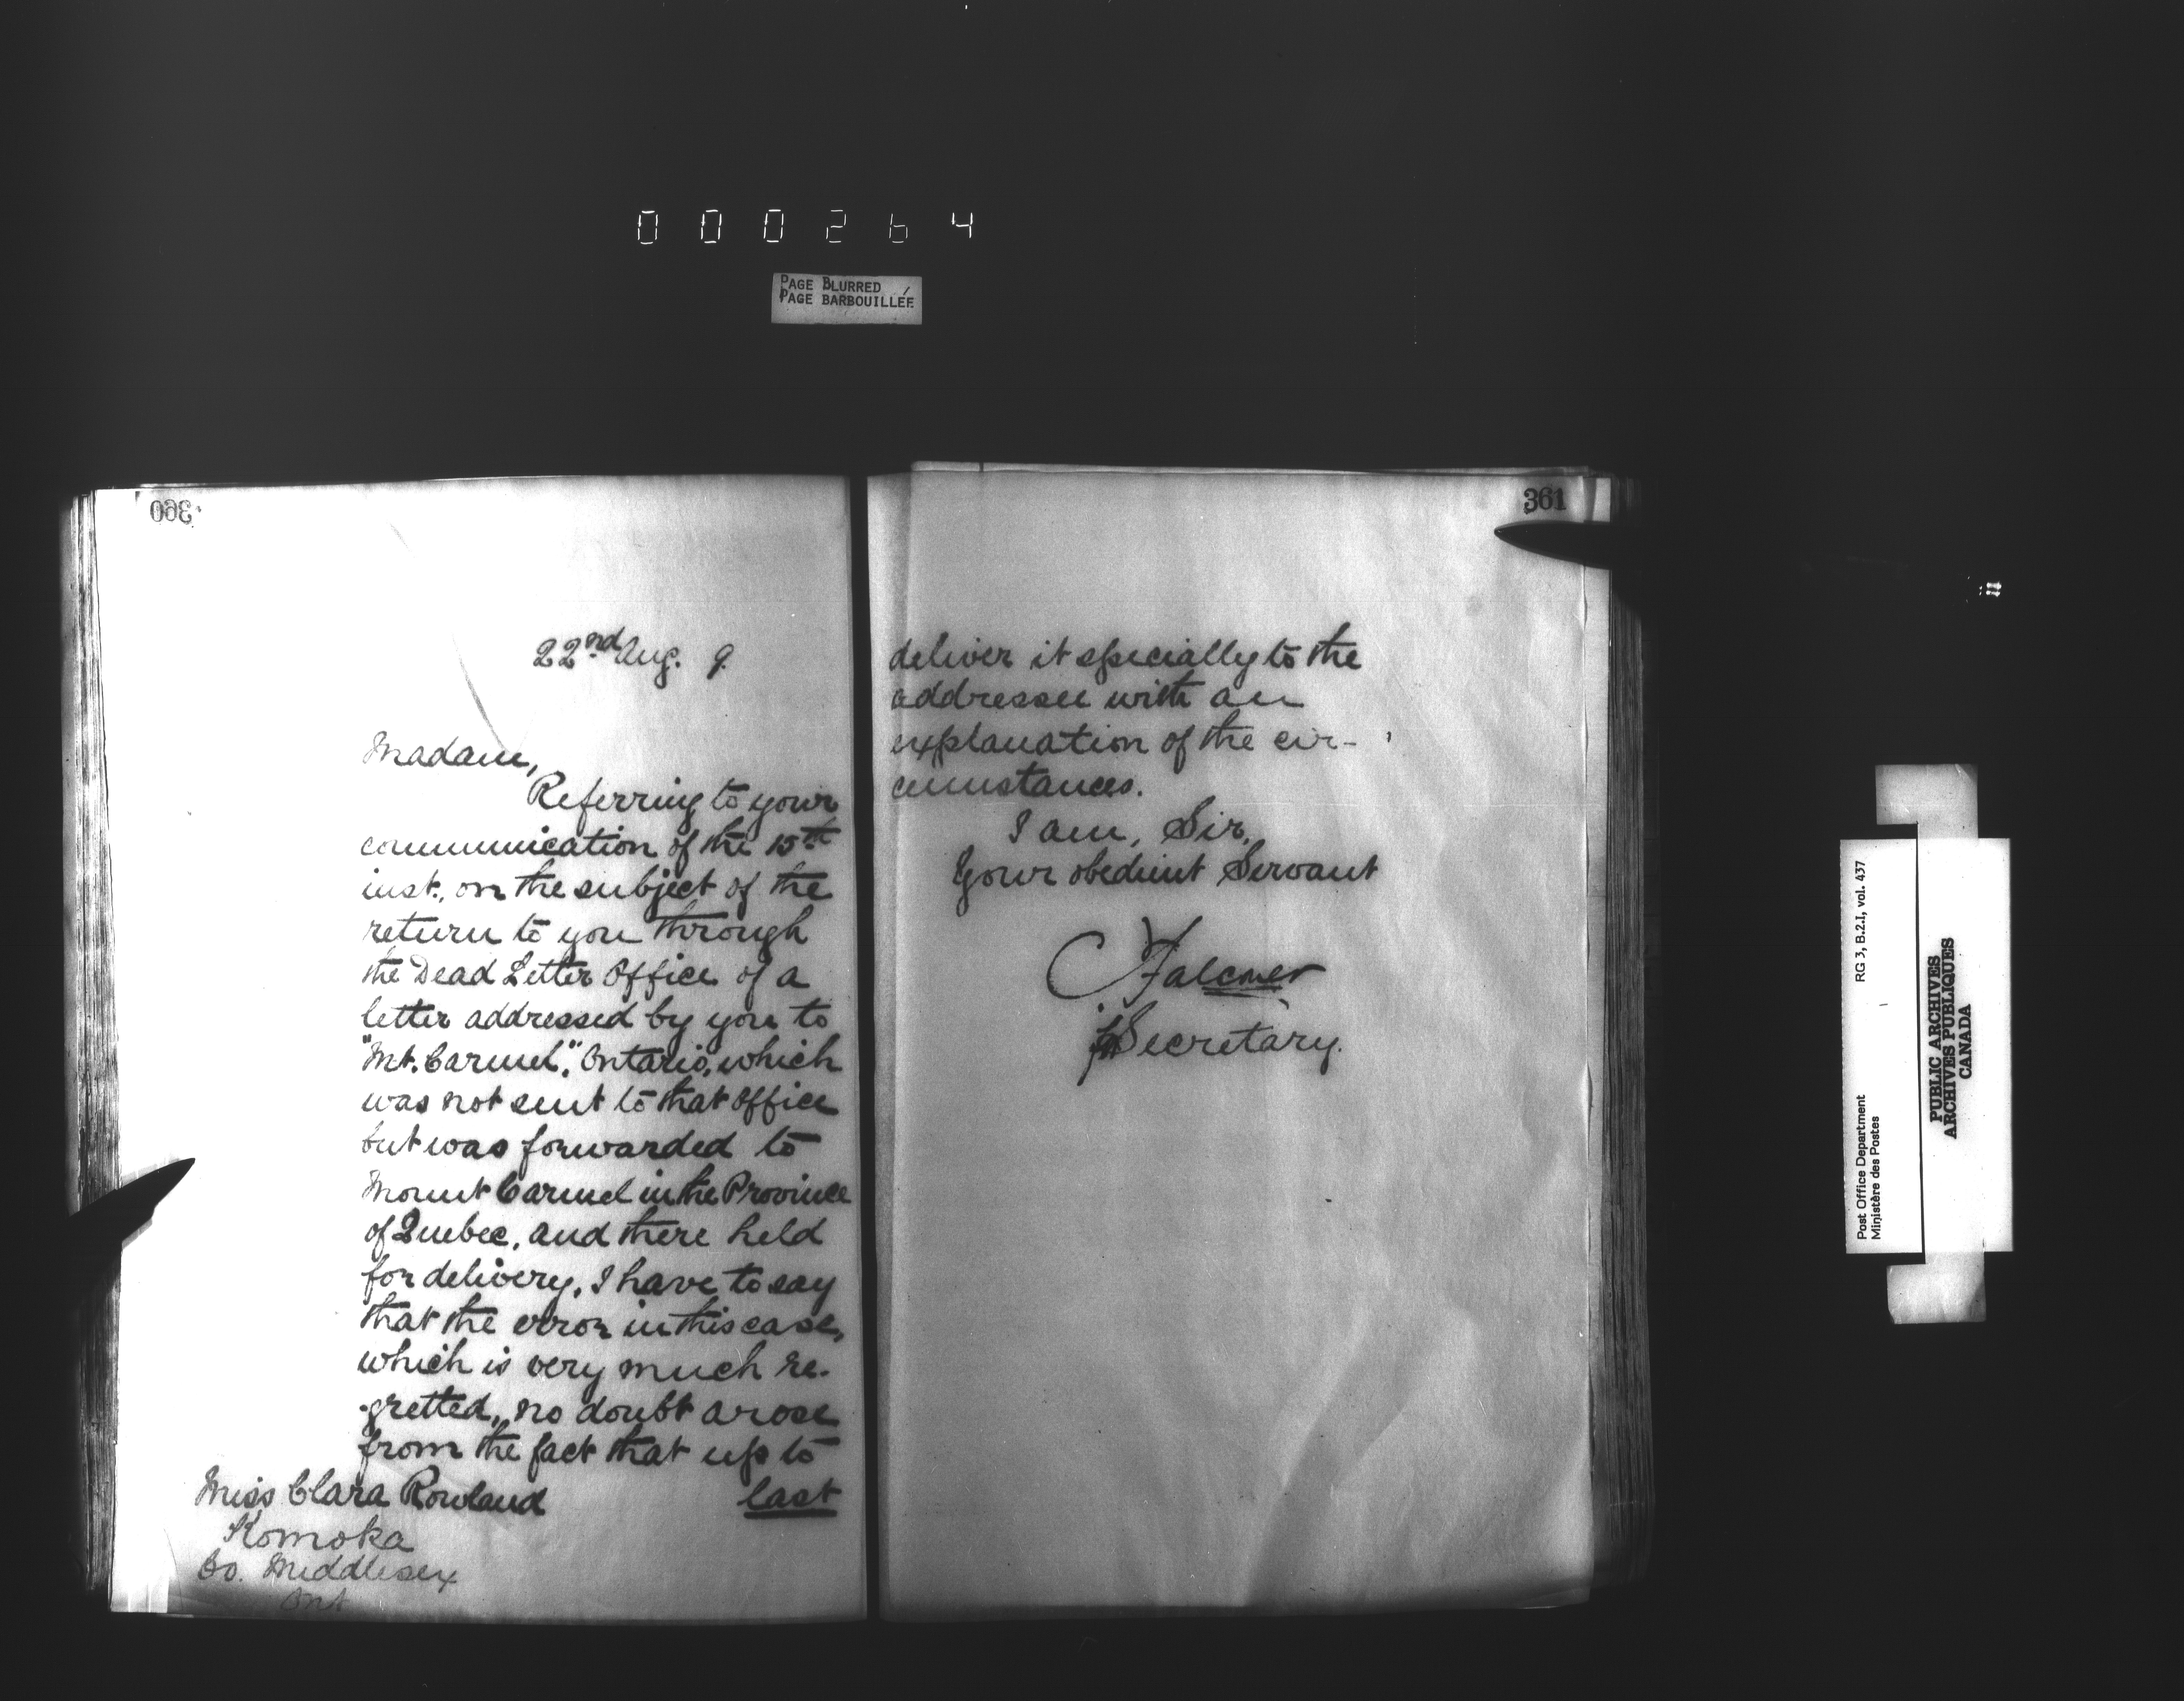 000264
PAGE BLURRED
PAGE BARBOUILLÉE
360
22nd Aug. 9.
Madam,
Referring to your
communication of the 15th
inst., on the subject of the
return to you through
the Dead Letter Office of a
letter addressed by you to
"Mt. Carmel", Ontario, which
was not sent to that office
but was forwarded to
Mount Carmel in the Province
of Quebec, and there held
for delivery, I have to say
that the error in this case,
which is very much re-
-gretted, no doubt arose
from the fact that up to
last
Miss Clara Rowland
Komoka
Co. Middlesex
Ont
361
deliver it specially to the
addressee with an
explanation of the cir-
cumstances.
I am, Sir,
Your obedient Servant
Falconer
Secretary.
RG 3, B.2.I, vol. 437
Post Office Department
Ministère des Postes
PUBLIC ARCHIVES
ARCHIVES PUBLIQUES
CANADA